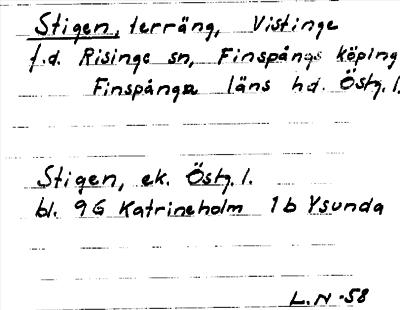 Stigen, terräng, Vistinge
f.d. Risinge sn, Finspångs köping
Finspånga läns hd. Östg. l.
Stigen, ek. Östg. l.
bl. 9G Katrineholm 1b Ysunda
L. N -58